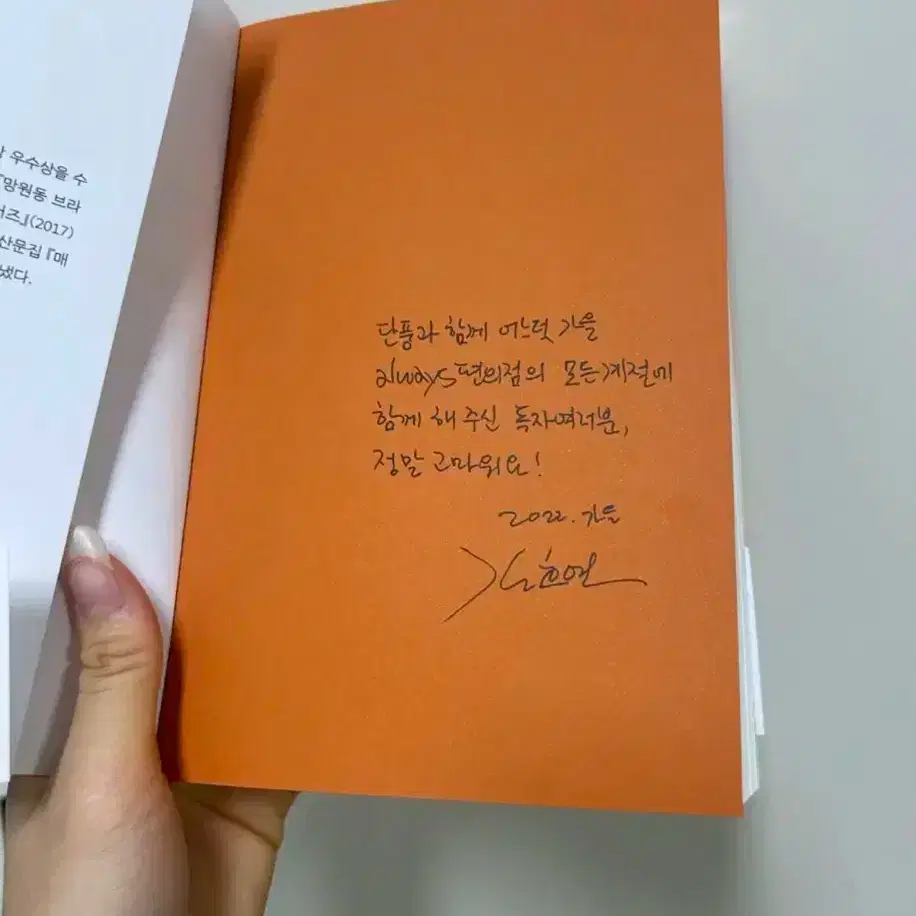 우수상을 수
『망원동 브라
즈』(2017)
산문집 『매
냈다.
단풍과 함께 어느덧 가을
always편의점의 모든계절에
함께 해 주신 독자여러분,
정말 고마워요!
2022. 가을
김호연